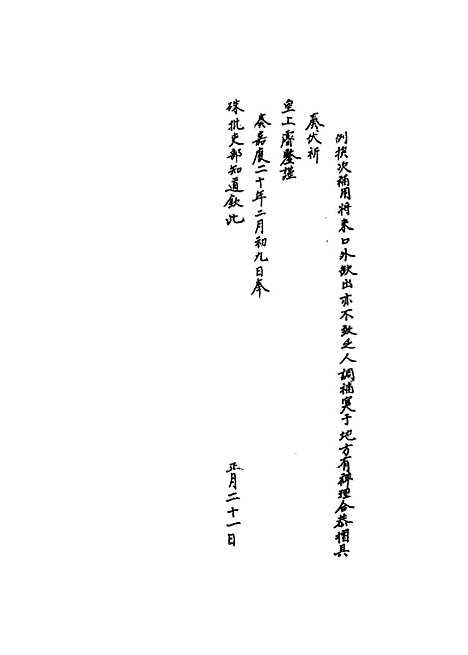 例挨次補用將來口外缺出亦不致乏人調補寔于地方有裨理合恭摺具
奏伏祈
皇上睿鑒謹
奏嘉慶二十年二月初九日奉
硃批吏部知道欽此
正月二十一日